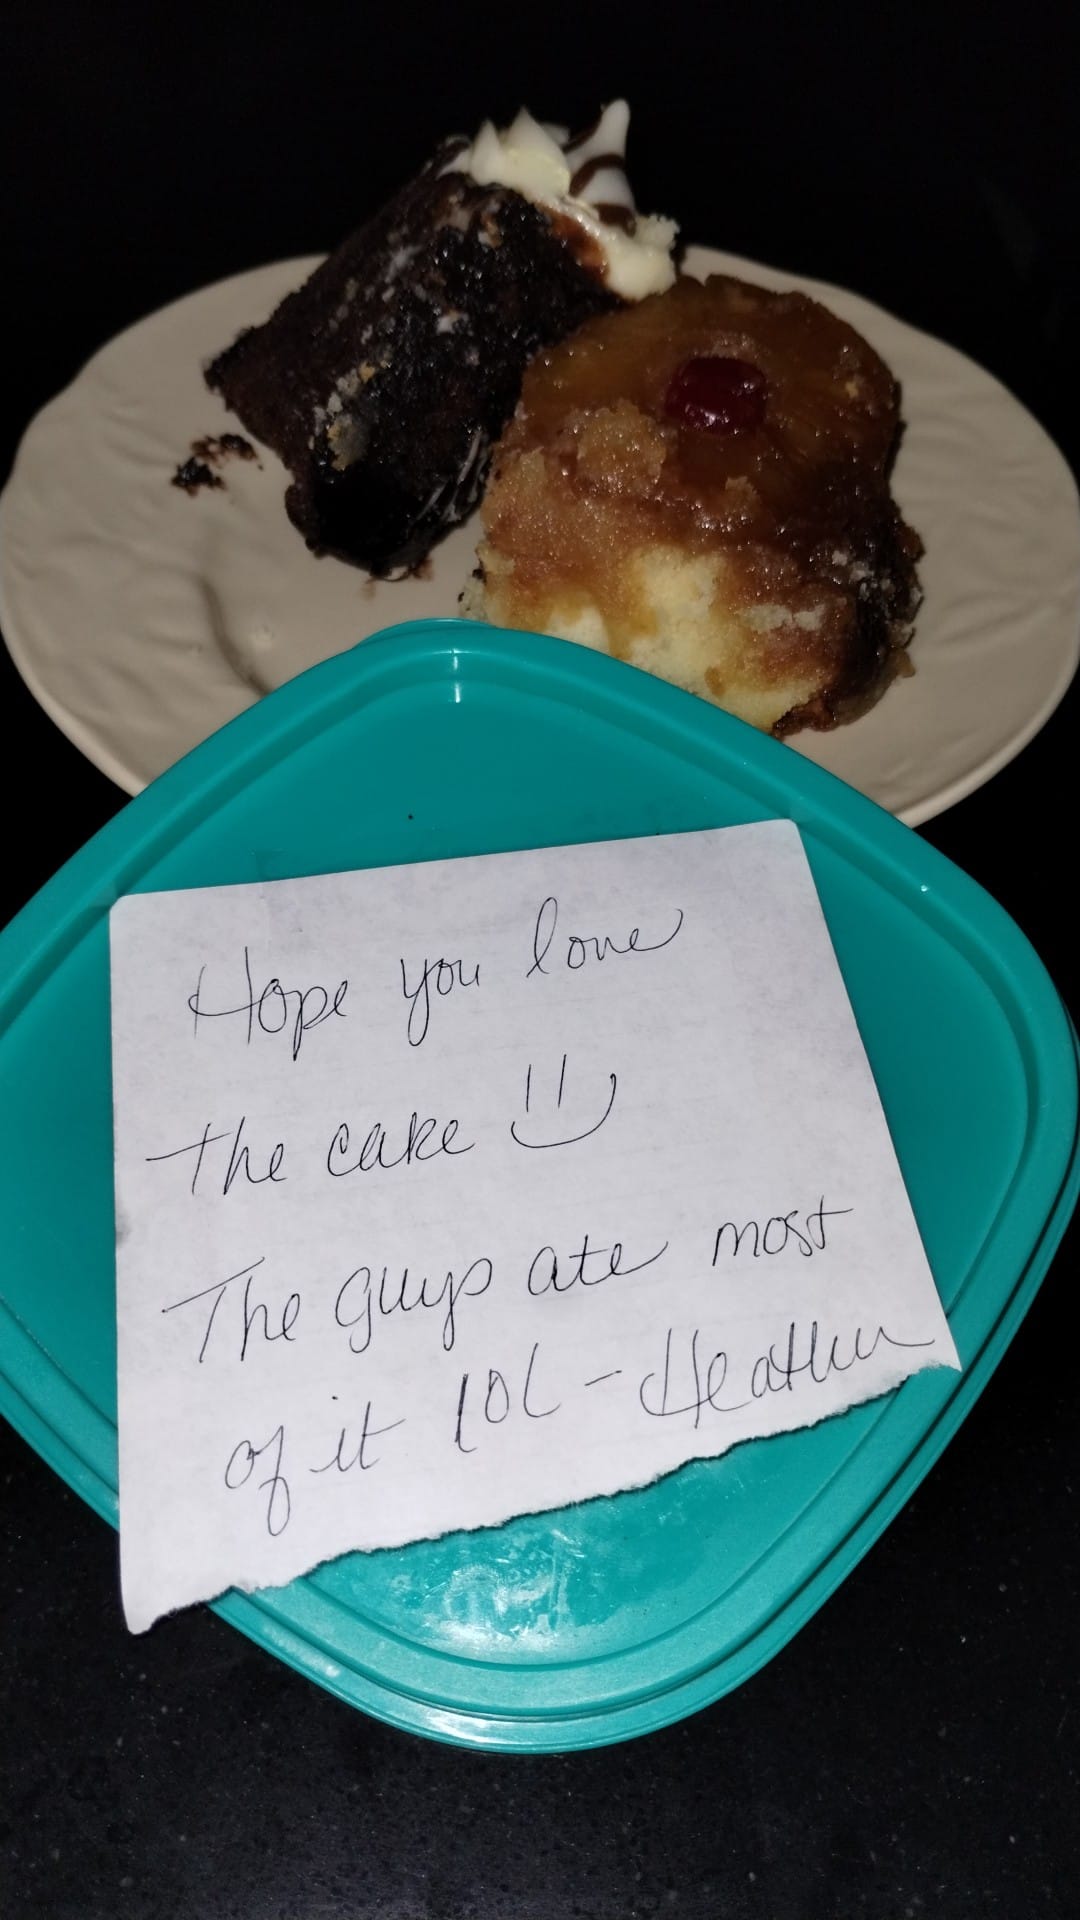 Hope you love
the cake
The guys ate most
of it lol - Heather